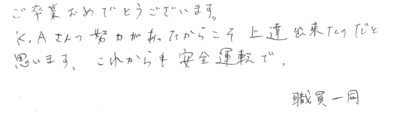 ご卒業おめでとうございます。
K.Aさんの努力があったからこそ上達出来たのだと
思います。これからも安全運転で。
職員一同